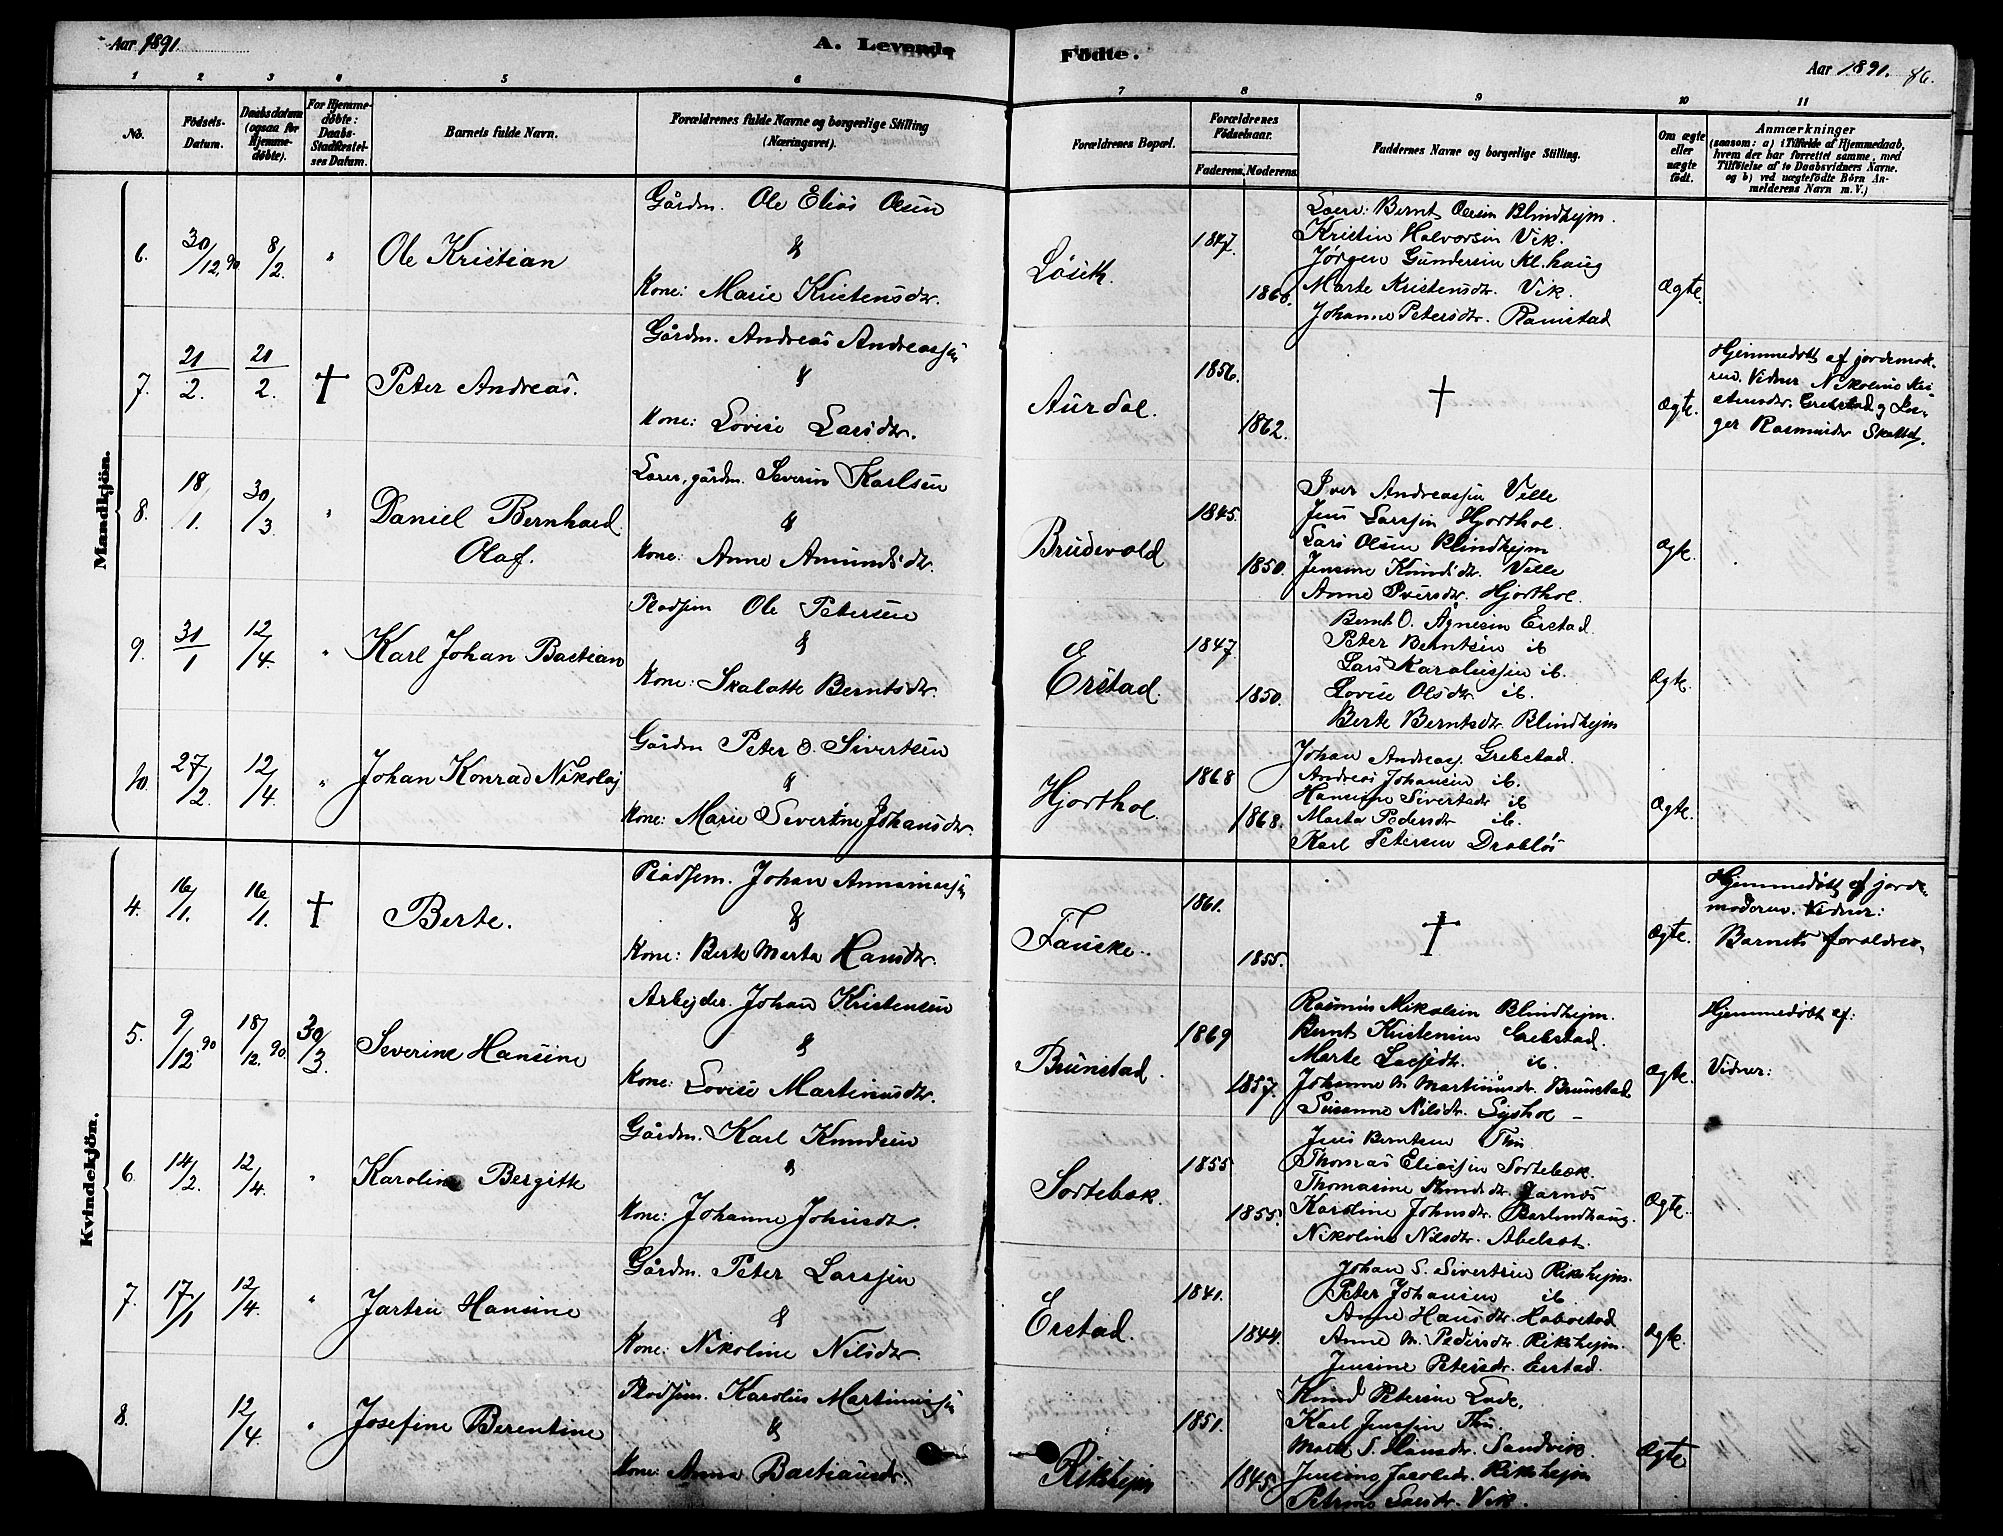 Aar 1891.
A. Levende Födte.
Aar 1891. 86.
1 2 3 4 5 6 7 8 9 10 11
No.
Födsels-Datum.
Daabsdatum (ogsaa for Hjemmedøbte).
For Hjemmedøbte: Daabs-Stadfæstelses Datum.
Barnets fulde Navn.
Forældrenes fulde Navne og borgerlige Stilling (Næringsvei).
Forældrenes Bopæl.
Forældrenes Födselsaar.
Faderens. Moderens.
Faddernes Navne og borgerlige Stilling.
Om ægte eller uægte födt.
Anmærkninger
(saasom: a) i Tilfælde af Hjemmedaab, hvem der har forrettet samme, med Tilföielse af to Daabsvidners Navne. og b) ved uægtefödte Börn Anmelderens Navn m. V.)
Mandkjön.
6. 30/12 90 8/2 " Ole Kristian
Gårdm. Ole Elias Olsen
&
Kone: Marie Kristensdtr.
Løseth. 1847. 1860.
Lærer: Bernt Olsen Blindhejm.
Kristin Halvorsen Vik.
Jørgen Gundersen Kl.haug
Marte Kristensdtr. Vik.
Johanne Petersdtr. Ramstad
Ægte.
7. 21/2. 21/2. † Peter Andreas.
Gårdm. Andreas Andreassen
&
Kone: Lovise Larsdtr.
Aurdal. 1856. 1862.
†
Ægte.
Hjemmedøbt af jordemod-
ren. Vidner Nikoline Kri-
stensdtr. Grebstad og
Rasmusdtr
8. 18/1. 30/3 " Daniel Bernhard
Olaf.
Lærer, gårdm. Severin Karlsen
&
Kone: Anne Amundsdtr.
Brudevold 1845. 1850.
Iver Andreassen Velle
Jens Larssen Hjorthol.
Lars Olsen Blindhejm
Jensine Knudsdtr. Velle
Anne Iversdtr. Hjorthol.
Ægte.
9. 31/1 12/4 " Karl Johan Bastian
Pladsem Ole Petersen
&
Kone: Skalotte Berntsdtr.
Erstad. 1847. 1850.
Bernt O. Agnesen Erstad.
Peter Berntsen ib
Lars Karoliussen ib.
Lovise Olsdtr. ib.
Berte Berntsdtr Blindhejm
Ægte.
10. 27/2. 12/4. " Johan Konrad Nikolaj
Gårdm Peter O. Sivertsen
&
Kone: Marie Severine Johansdtr.
Hjorthol. 1868 1868.
Johan Andreas. Grebstad.
Andreas Johansen ib.
Hansine Sivertsdtr ib
Marta Pedersdtr ib.
Karl Petersen Drabløs
Ægte.
Kvindekjön.
4. 16/1. 16/1. † Berte.
Pladsem. Johan Annaniassen
&
Kone: Berte Marta Hansdtr.
Fauske. 1861. 1855.
†
Ægte.
Hjemmedøbt af jorde-
moderen. Vidner:
Barnets forældre.
5. 9/12 90 18/12. 90 30/3. Severine Hansine
Arbejder. Johan Kristensen
&
Kone: Lovise Martinusdtr.
Brunstad. 1869 1857.
Rasmus Mikalsen Blindhejm.
Bernt Kristensen Grebstad.
Marte Larsdtr. ib.
Johanne M. Martinusdtr. Brunstad
Susanne Nilsdtr. Sjøhol
Ægte.
Hjemmedøbt af:
Vidner:
6. 14/2. 12/4. " Karoline Bergitte
Gårdm. Karl Knudsen
&
Kone: Johanne Johnsdtr.
Sortebæk. 1855 1855.
Jens Berntsen Thu
Thomas Eliassen Sortebæk.
Thomasine Knudsdtr. Jarnæs
Karoline Johnsdtr. Barlindhaug.
Nikoline Nilsdtr. Abelset.
Ægte.
7. 17/1 12/4. " Jartru Hansine
Gårdm. Peter Larssen
&
Kone: Nikoline Nilsdtr.
Erstad. 1841. 1844.
Johan S. Sivertsen Rikshejm.
Peter Johansen ib.
Anne Hansdtr.
Anne M. Pedersdtr. Rikshejm.
Jensine Petersdtr. Erstad.
Ægte.
8. 12/4. " Josefine Berentine
Pladsem. Karolus Martinussen
&
Kone: Anna Bastiansdtr.
Rikshejm 1851. 1845.
Knud Petersen
Karl Jenssen Thu.
S. Hansdtr. Sandvik
Jacobsdtr. Rikshejm
Larsdtr. Vik.
Ægte